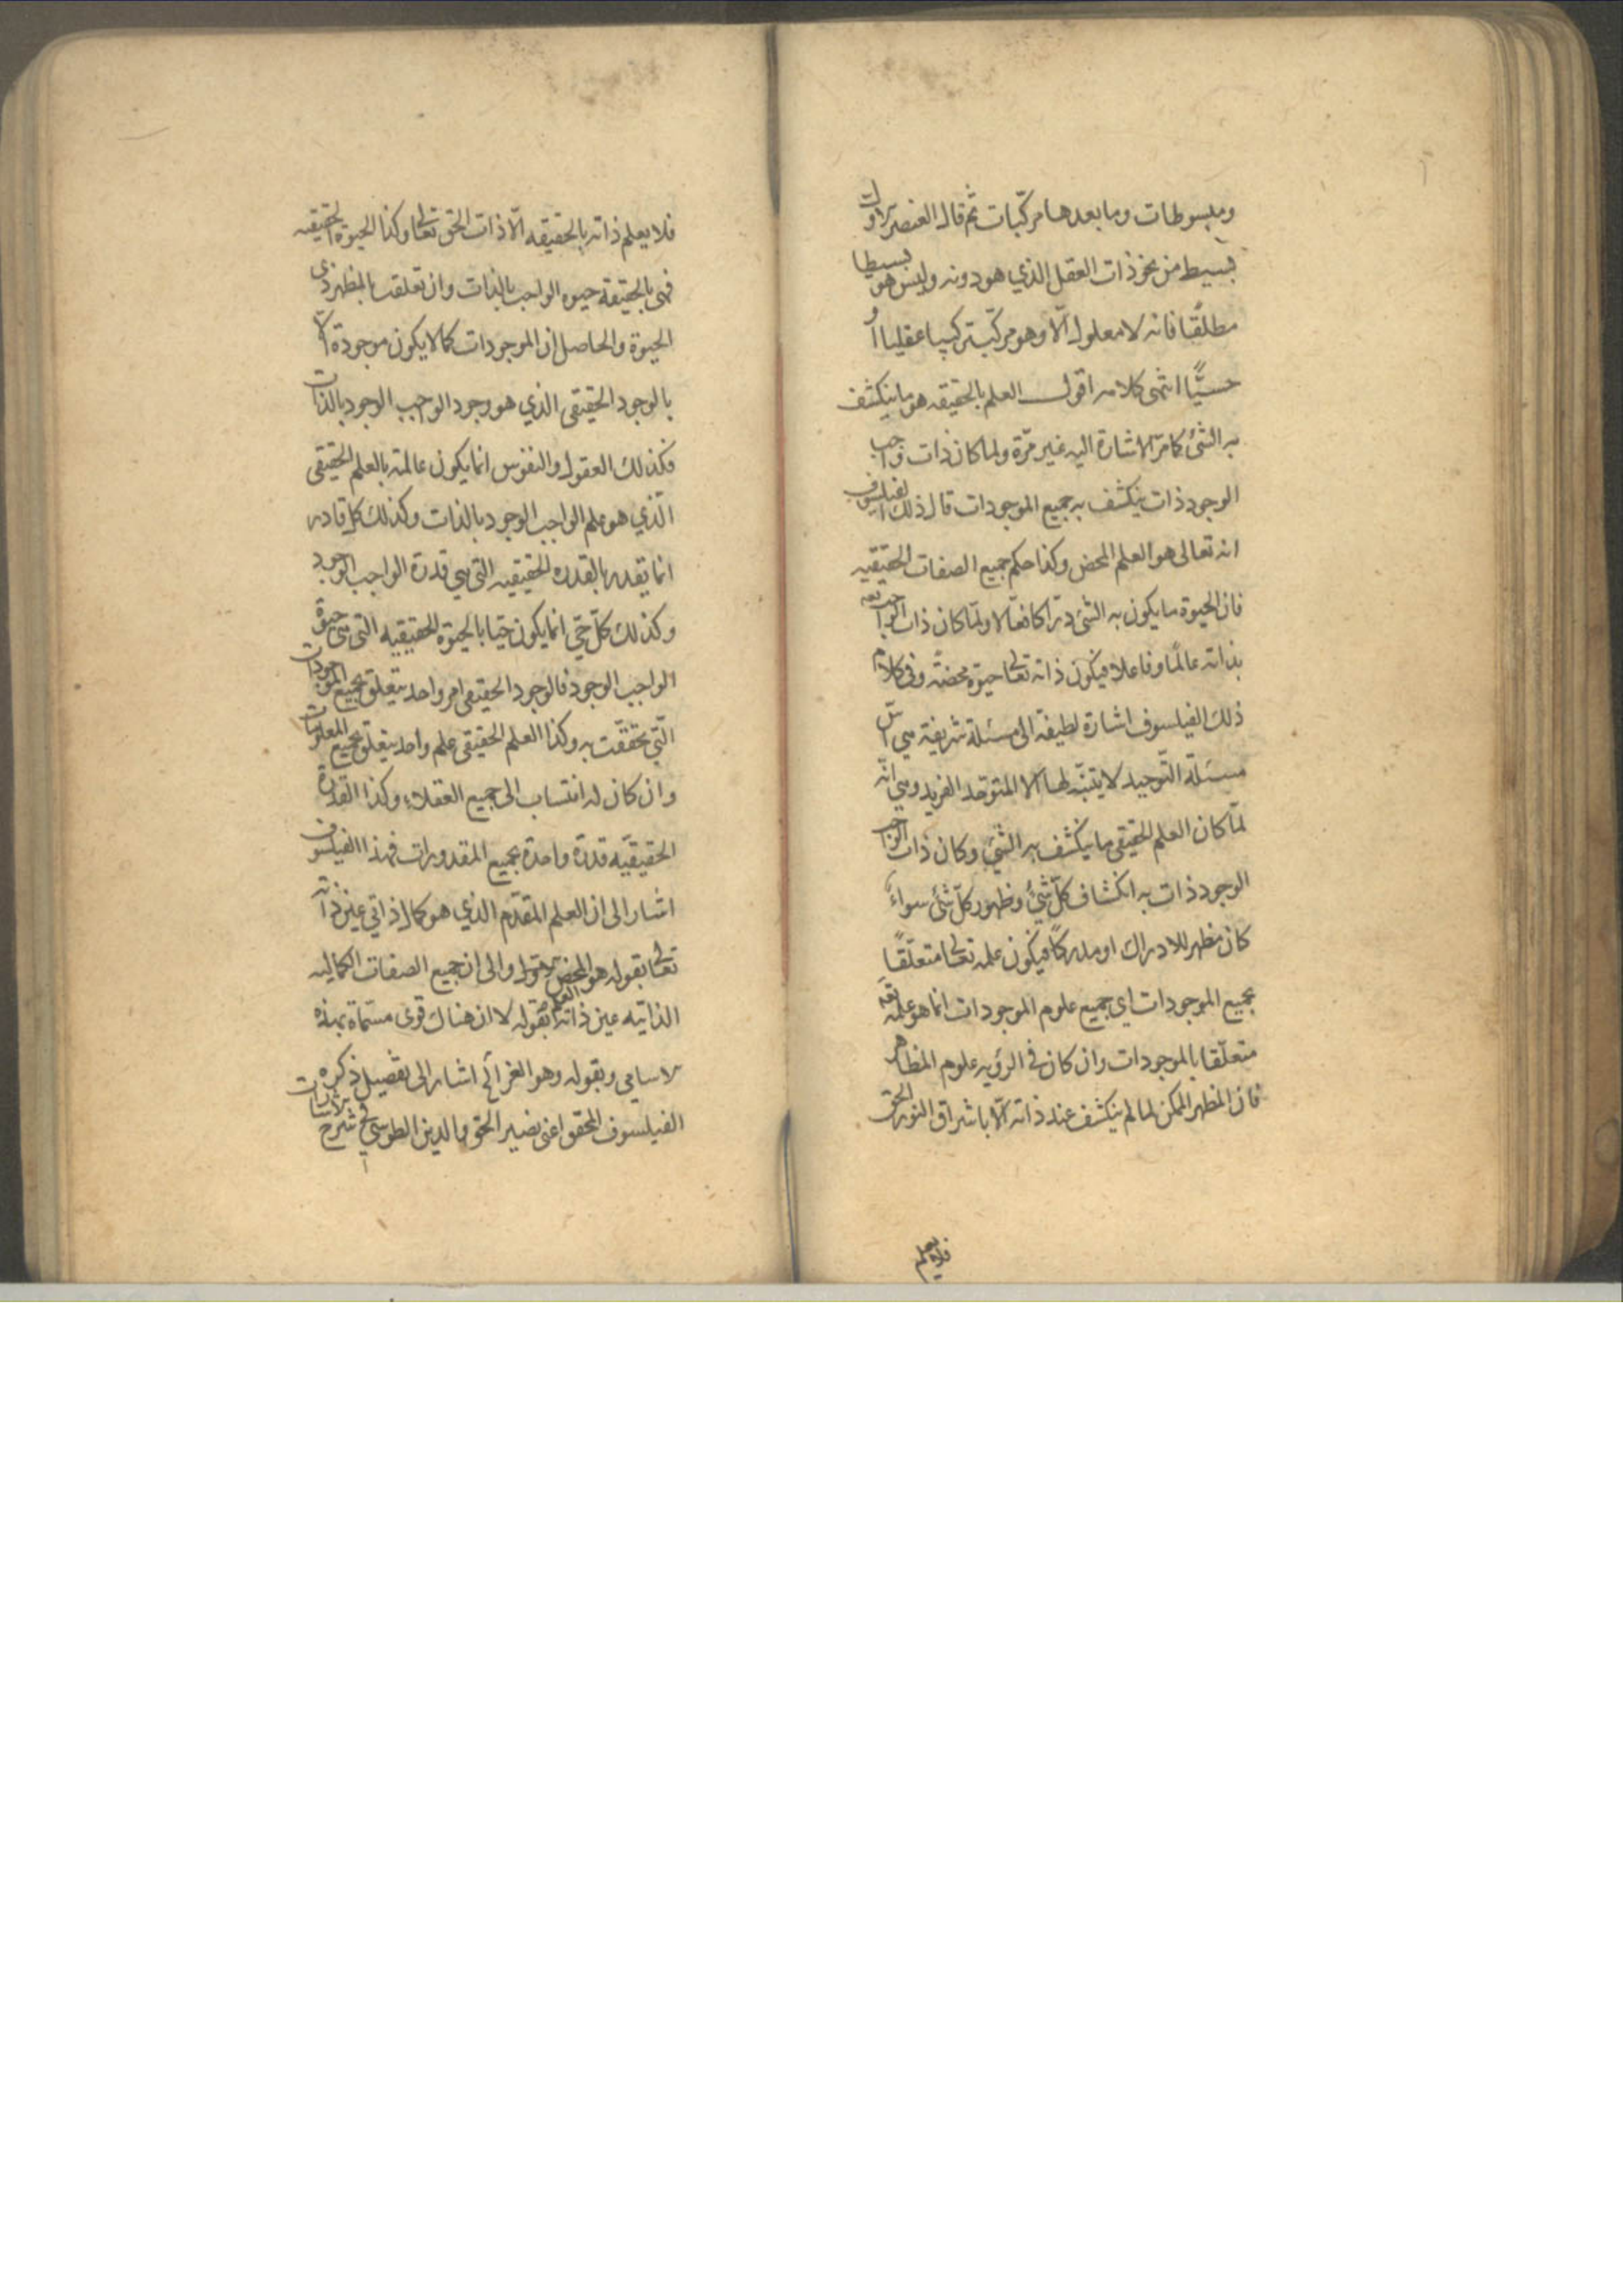 ومبسوطات وما بعدها مركّبات ثم قال العنصر الاول
بسيط من نحو ذات العقل الذي هو دونه وليس هو بسيطا
مطلقًا فانه لا معلول الّا وهو مركّب تركيبا عقليا او
حسيًّا انتهى كلامه اقول العلم بالحقيقه هو ما ينكشف
به الشئ كما مرّ الاشارة اليه غير مرّة ولما كان ذات واجب
الوجود ذات ينكشف به جميع الموجودات قال ذلك الفيلسوف
انه تعالى هو العلم المحض وكذا حكم جميع الصفات الحقيقيه
فان الحيوة ما يكون به الشئ درّاكا فعّالا ولمّا كان ذات الواجب تعه
بذاته عالمًا وفاعلا فيكون ذاته تعالى حيوة محضةً وفي كلام
ذلك الفيلسوف اشارة لطيفة الى مسئلة شريفة هي اسّ
مسئلة التّوحيد لا يتنبّه لها الّا المتوحّد الفريد وهي انّه
لمّا كان العلم الحقيقي ما ينكشف به الشئ وكان ذات الواجب
الوجود ذات به انكشاف كلّ شئ وظهور كلّ شئ سواءً
كان مظهر للادراك او مدركًا فيكون علمه تعالى متعلّقًا
بجميع الموجودات اي جميع علوم الموجودات انما هو علمه تعه
متعلّقا بالموجودات وان كان في الرؤيه علوم المظاهر
فان المظهر الممكن لما لم ينكشف عند ذاته الّا باشراق النور الحق
فلا يعلم
فلا يعلم ذاته بالحقيقه الّا ذات الحق تعالى وكذا الحيوة الحقيقيه
فهي بالحقيقة حيوه الواجب بالذات وان تعلقت بالمظهر ذي
الحيوة والحاصل ان الموجودات كما لا يكون موجودة الّا
بالوجود الحقيقي الذي هو وجود الواجب الوجود بالذات
فكذلك العقول والنفوس انما يكون عالمة بالعلم الحقيقي
الّذي هو علم الواجب الوجود بالذات وكذلك كل قادر
انما يقدر بالقدره الحقيقيه التي هي قدرة الواجب الوجود
وكذلك كلّ حيّ انما يكون حيّا بالحيوة الحقيقيه التي هي حيوة
الواجب الوجود فالوجود الحقيقي امر واحد يتعلق بجميع الموجودات
الّتي تحققت به وكذا العلم الحقيقي علم واحد يتعلق بجميع المعلومات
وان كان له انتساب الى جميع العقلاء وكذا القدرة
الحقيقيّه قدرة واحدة بجميع المقدورات فهذا الفيلسوف
اشار الى ان العلم المقدّم الذي هو كمال ذاتي عين ذاته
تعالى بقوله هو العلم المحض والى ان جميع الصفات الكماليه
الذاتيه عين ذاته بقوله لا ان هناك قوى مسمّاة بهذه
الاسامي وبقوله وهو الغزالخ اشار الى تفصيل ذكره
الفيلسوف المحقق اعني نصير الحق والدين الطوسي في شرح الاشارات